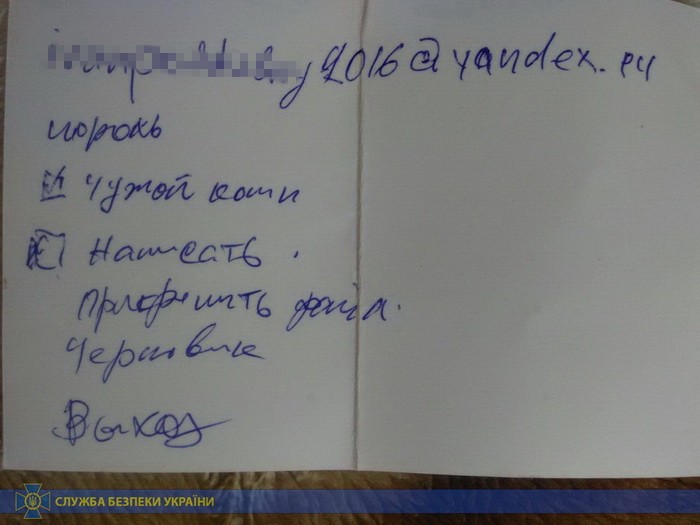 y2016@yandex.ru
пороль
Чужой комп
Написать.
Прикрепить файл.
Черновик
Выход
СЛУЖБА БЕЗПЕКИ УКРАЇНИ